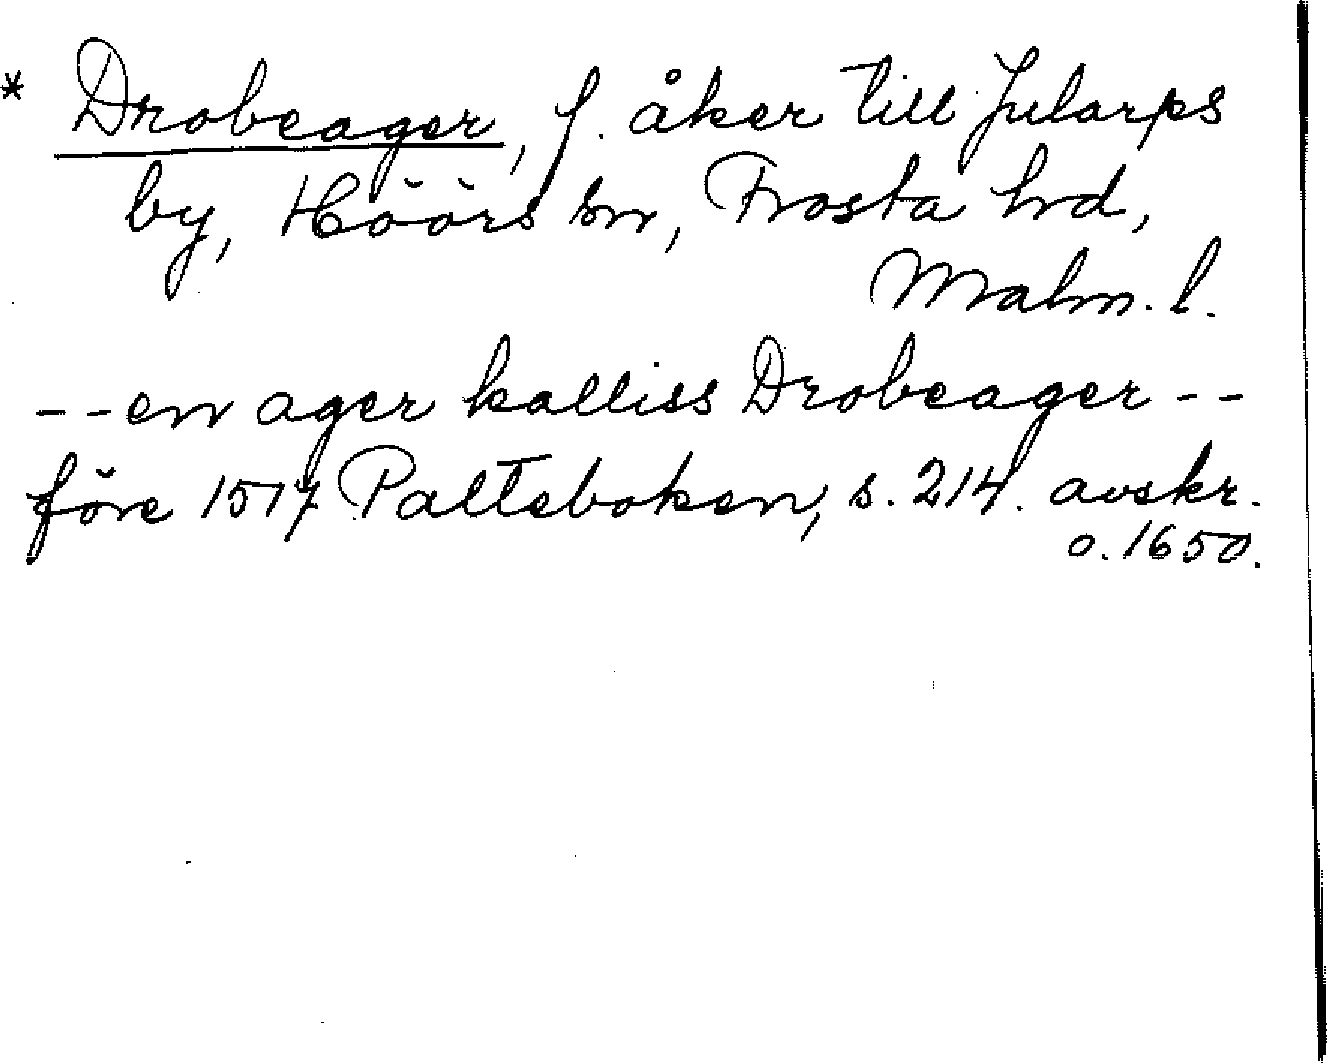 * Drobeager, f. åker till Jularps
by, Höörs sn, Frosta hd,
Malm. l.
-- en ager kalliss Drobeager --
före 1517 Palteboken, s. 214. avskr.
o. 1650.